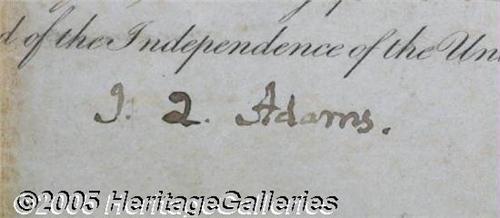 d of the Independence of the Un
J. Q. Adams.
©2005 HeritageGalleries